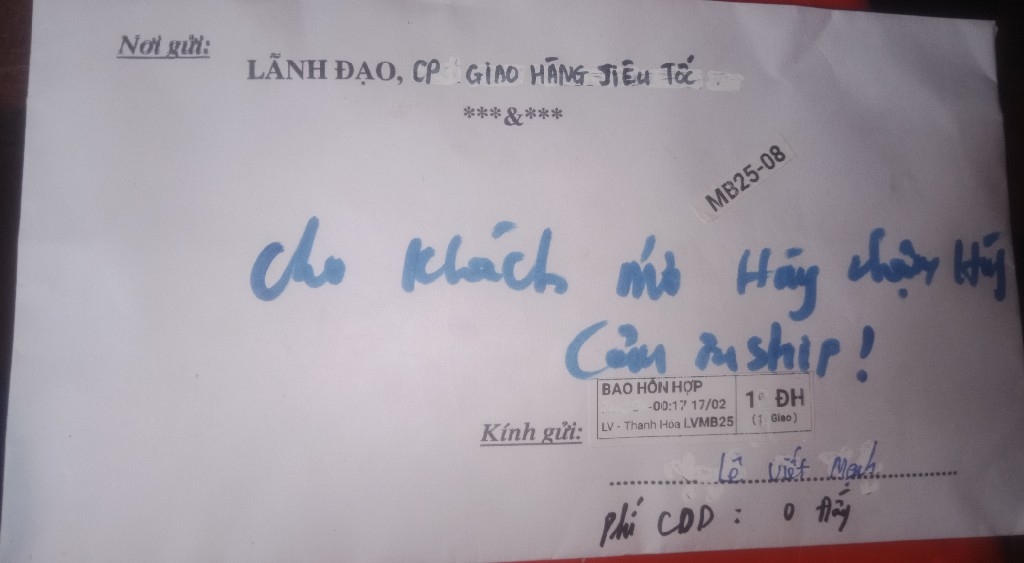 Nơi gửi:
LÃNH ĐẠO, CP GIAO HÀNG TIÊU TỐC
***&***
MB25-08
Cho Khách mở Hãy nhận Hãy
Cảm ơn ship!
BAO HỖN HỢP
-00:17 17/02
LV - Thanh Hóa LVMB25
1 ĐH
(1 Giao)
Kính gửi:
Lê Viết Mạnh
Phí COD : 0 đấy